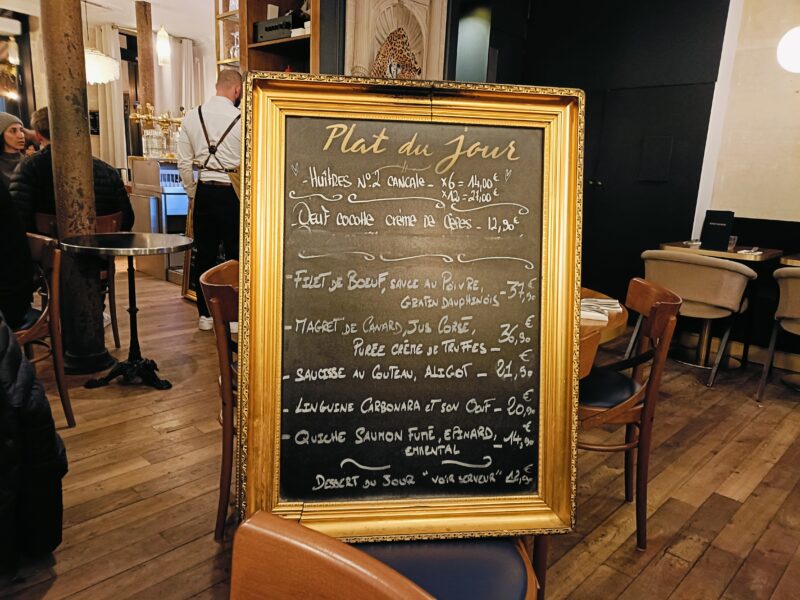 Plat du jour
- Huîtres N°2 CANCALE - x6 = 14,00€
x12 = 21,00€
Oeuf cocotte crème de Cèpes - 12,90€
- Filet de Boeuf, sauce au Poivre,
Gratin Dauphinois - 37,90€
- Magret de Canard, Jus Corsé,
Purée crème de Truffes - 36,90€
- Saucisse au Couteau, Aligot - 21,90€
- Linguine Carbonara et son Oeuf - 20,90€
- Quiche Saumon Fumé, Epinard,
emmental - 14,90€
Dessert du Jour "voir serveur" 12,90€